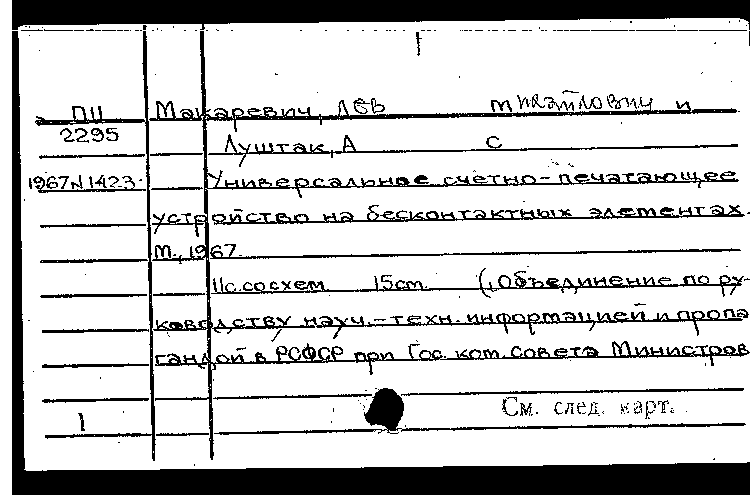 ПII Макаревич, Лев Михайлович и
2295 Луштак, А С
1967 N 1423. Универсальное счетно-печатающее
устройство на бесконтактных элементах.
М., 1967.
11с. со схем 15см (Объединение по ру-
ководству науч.-техн. информацией и пропа
гандой в РСФСР при Гос. ком. Совета Министров
1 См. след. карт.